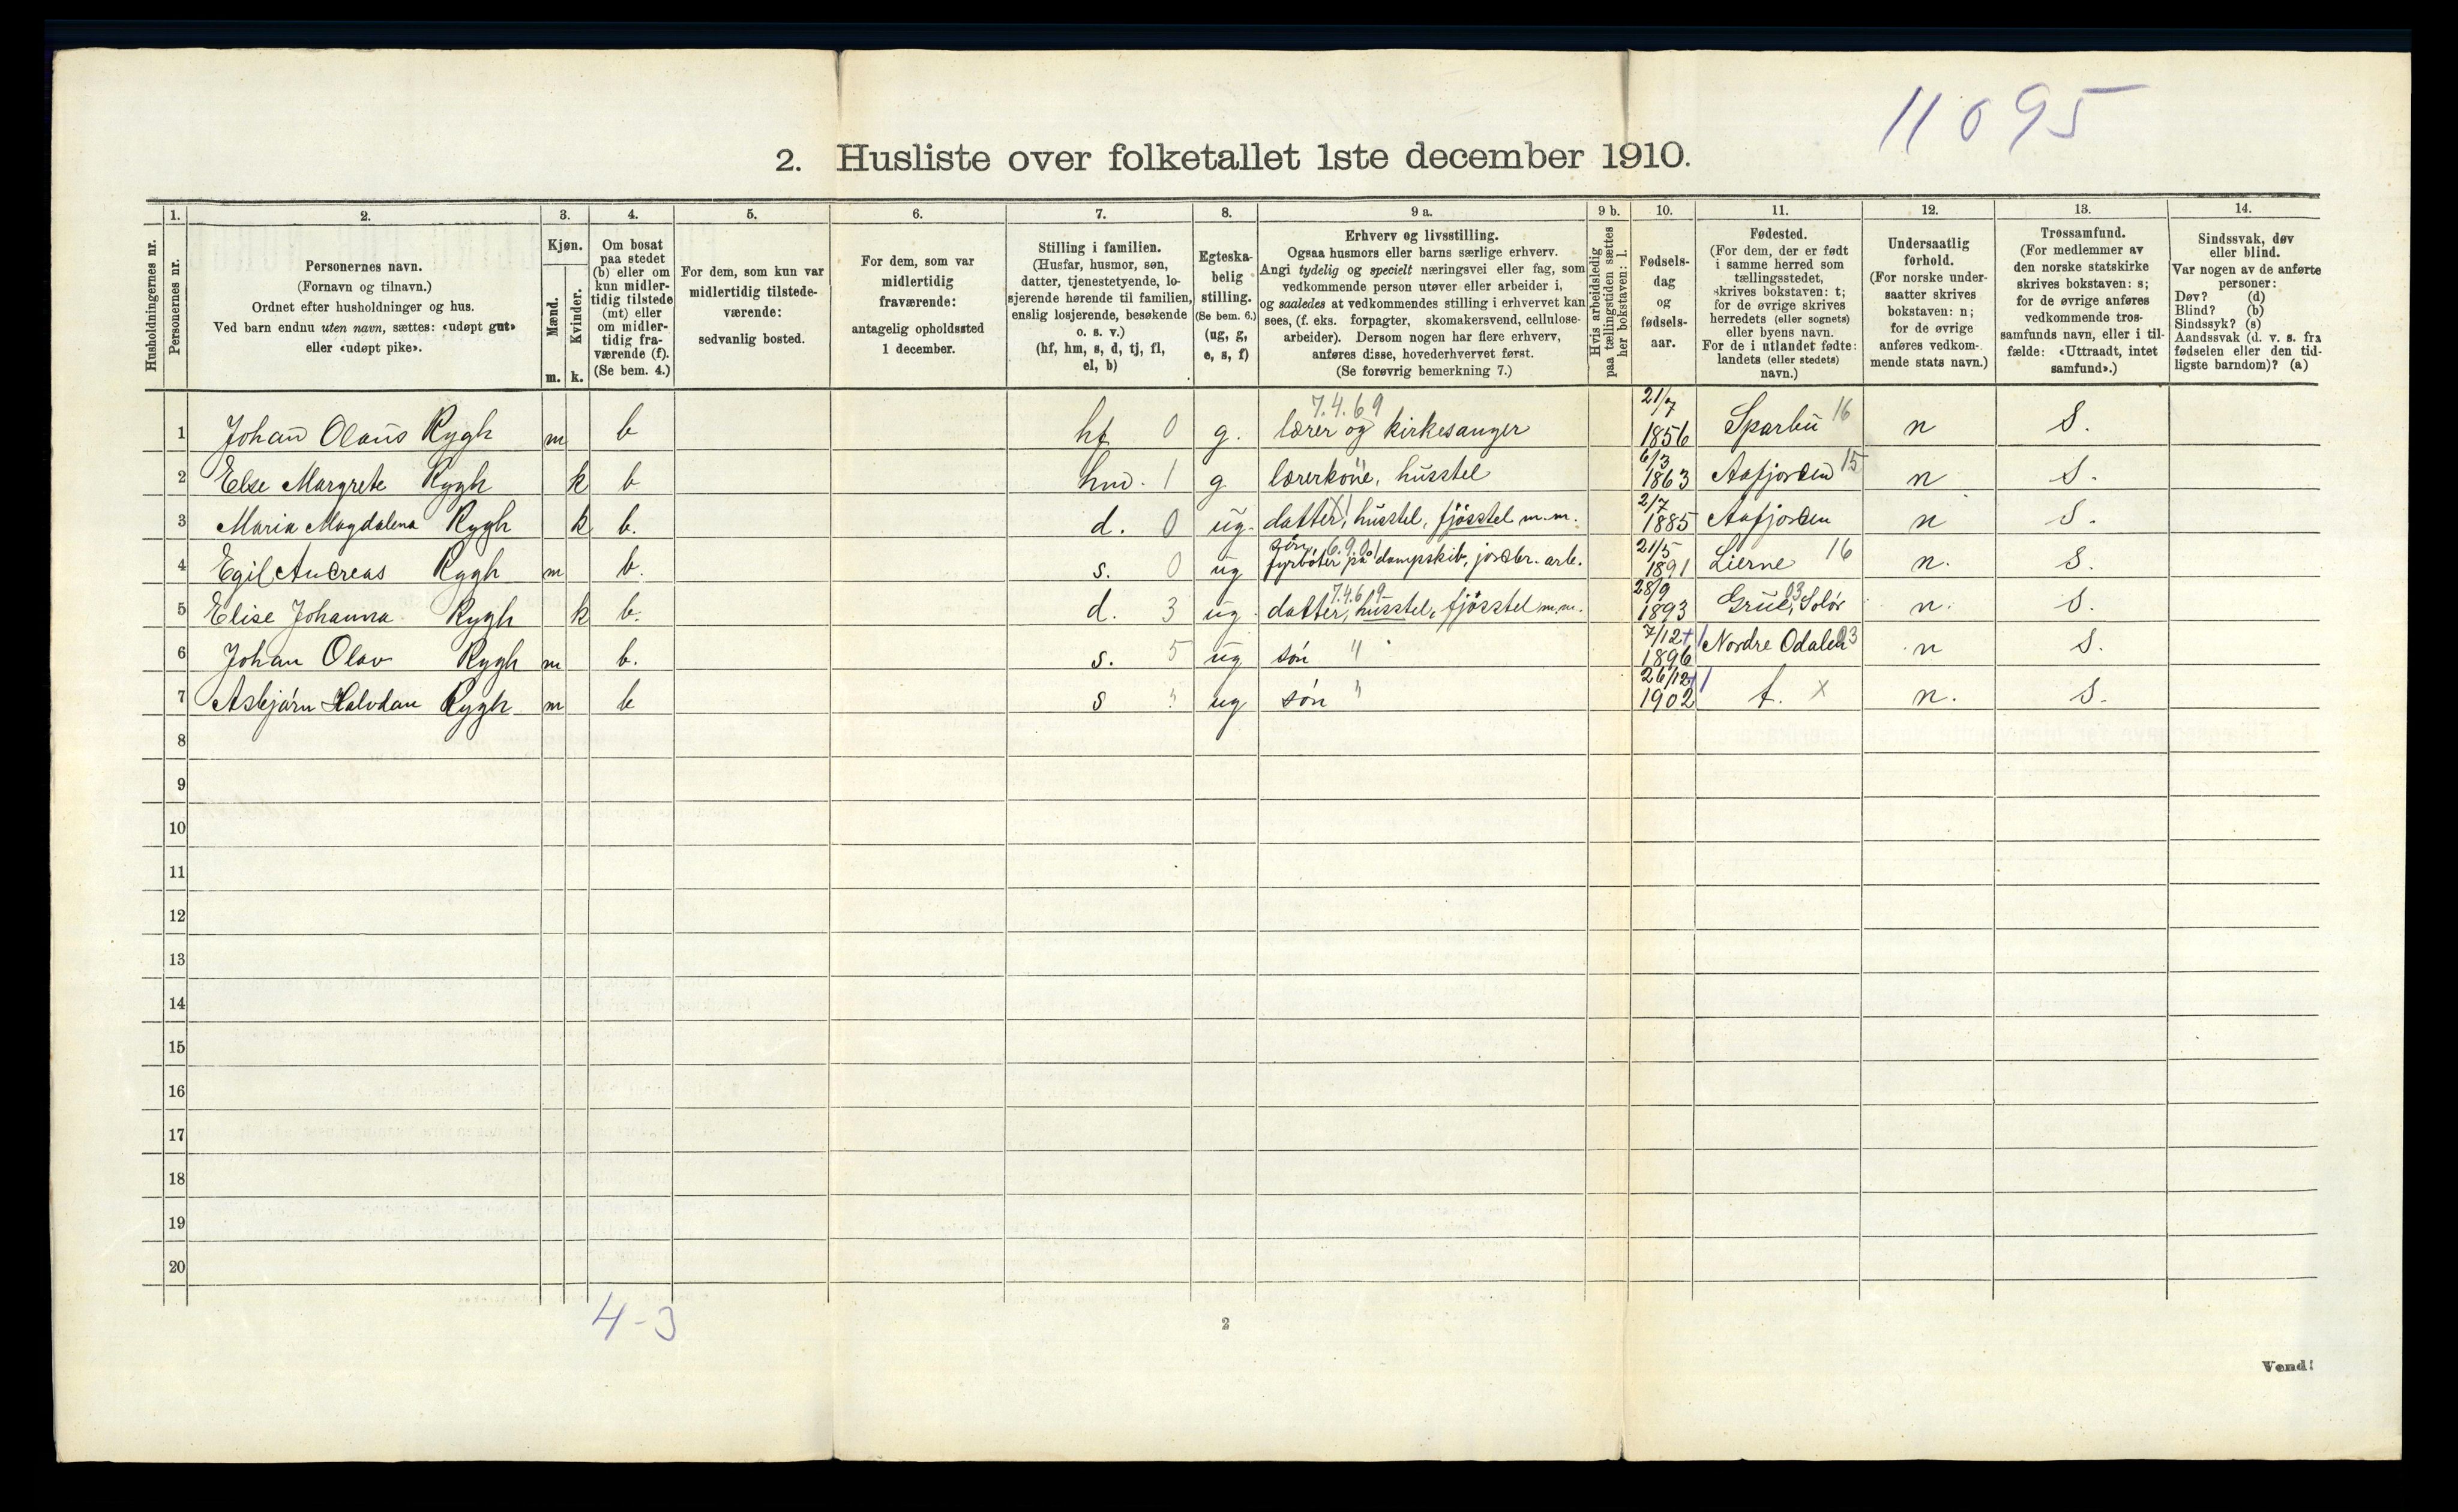 11095
2. Husliste over folketallet 1ste december 1910.
Husholdningernes nr.
1.
Personernes nr.
2.
Personernes navn.
(Fornavn og tilnavn.)
Ordnet efter husholdninger og hus.
Ved barn endnu uten navn, sættes: «udøpt gut»
eller «udøpt pike».
3.
Kjøn.
Mænd.
Kvinder.
m. k.
4.
Om bosat
paa stedet
(b) eller om
kun midler-
tidig tilstede
(mt) eller
om midler-
tidig fra-
værende (f).
(Se bem. 4.)
5.
For dem, som kun var
midlertidig tilstede-
værende:
sedvanlig bosted.
6.
For dem, som var
midlertidig
fraværende:
antagelig opholdssted
1 december.
7.
Stilling i familien.
(Husfar, husmor, søn,
datter, tjenestetyende, lo-
sjerende hørende til familien,
enslig losjerende, besøkende
o. s. v.)
(hf, hm, s, d, tj, fl,
el, b)
8.
Egteska-
belig
stilling.
(Se bem. 6.)
(ug, g,
e, s, f)
9 a.
Erhverv og livsstilling.
Ogsaa husmors eller barns særlige erhverv.
Angi tydelig og specielt næringsvei eller fag, som
vedkommende person utøver eller arbeider i,
og saaledes at vedkommendes stilling i erhvervet kan
sees, (f. eks. forpagter, skomakersvend, cellulose-
arbeider). Dersom nogen har flere erhverv,
anføres disse, hovederhvervet først.
(Se forøvrig bemerkning 7.)
9 b.
Hvis arbeidsledig
paa tællingstiden sættes
her bokstaven: l.
10.
Fødsels-
dag
og
fødsels-
aar.
11.
Fødested.
(For dem, der er født
i samme herred som
tællingsstedet,
skrives bokstaven: t;
for de øvrige skrives
herredets (eller sognets)
eller byens navn.
For de i utlandet fødte:
landets (eller stedets)
navn.)
12.
Undersaatlig
forhold.
(For norske under-
saatter skrives
bokstaven: n;
for de øvrige
anføres vedkom-
mende stats navn.)
13.
Trossamfund.
(For medlemmer av
den norske statskirke
skrives bokstaven: s;
for de øvrige anføres
vedkommende tros-
samfunds navn, eller i til-
fælde: «Uttraadt, intet
samfund».)
14.
Sindssvak, døv
eller blind.
Var nogen av de anførte
personer:
Døv? (d)
Blind? (b)
Sindssyk? (s)
Aandssvak (d. v. s. fra
fødselen eller den tid-
ligste barndom)? (a)
7.4.69 21/7
1 Johan Olaus Rygh m b hf 0 g. lærer og kirkesanger 1856 Sparbu 16 n S.
6/3
2 Else Margrete Rygh k b hm. 1 g lærerkone, husstel 1863 Aafjorden 15 n S.
2/7
3 Maria Magdalena Rygh k b. d. 0 ug. datter, husstel, fjösstel m.m. 1885 Aafjorden n S.
søn, 6.9.01 21/5
4 Egil Andreas Rygh m b. s. 0 ug fyrbøter på dampskib, jordbr. arb. 1891 Lierne 16 n. S.
7.4.69 28/9
5 Elise Johanna Rygh k b. d. 3 ug. datter, husstel, fjösstel m.m. 1893 Grue, Solör 03 n. S.
7/12
6 Johan Olav Rygh m b. s. 5 ug søn " 1896 Nordre Odalen 03 n S.
26/12
7 Asbjørn Halvdan Rygh m b s " ug søn " 1902 t. x n. S.
8
9
10
11
12
13
14
15
16
17
18
19
20
4-3
2
Vend!